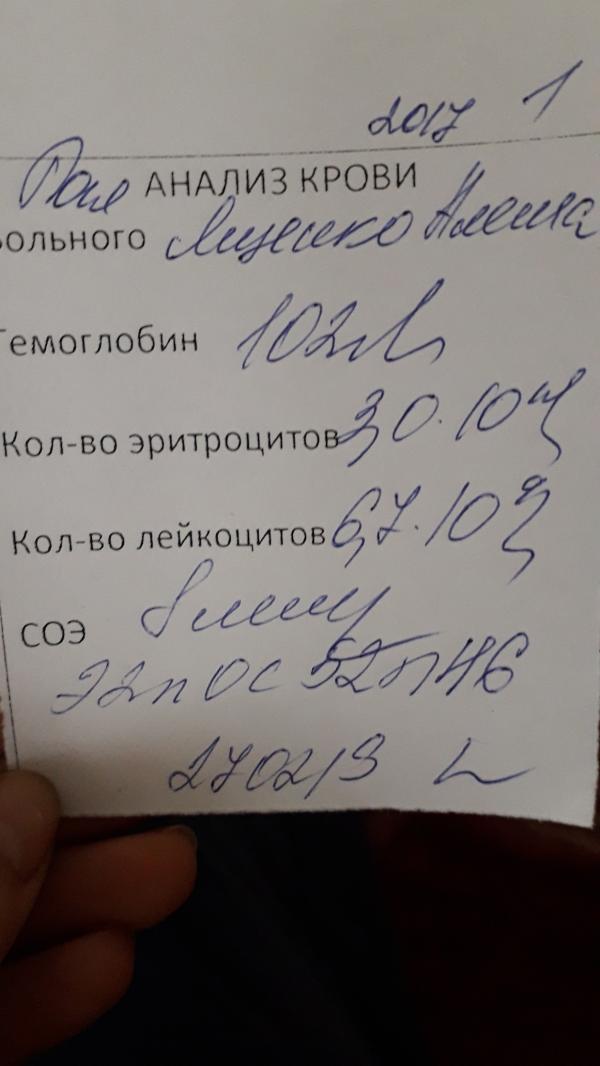 2017 1
АНАЛИЗ КРОВИ
больного Лященко Алина
Гемоглобин 102 г/л
Кол-во эритроцитов 3,0·10
Кол-во лейкоцитов 6,7·10⁹
СОЭ 8 мм/ч
Э2 п0 с52 л46
270219